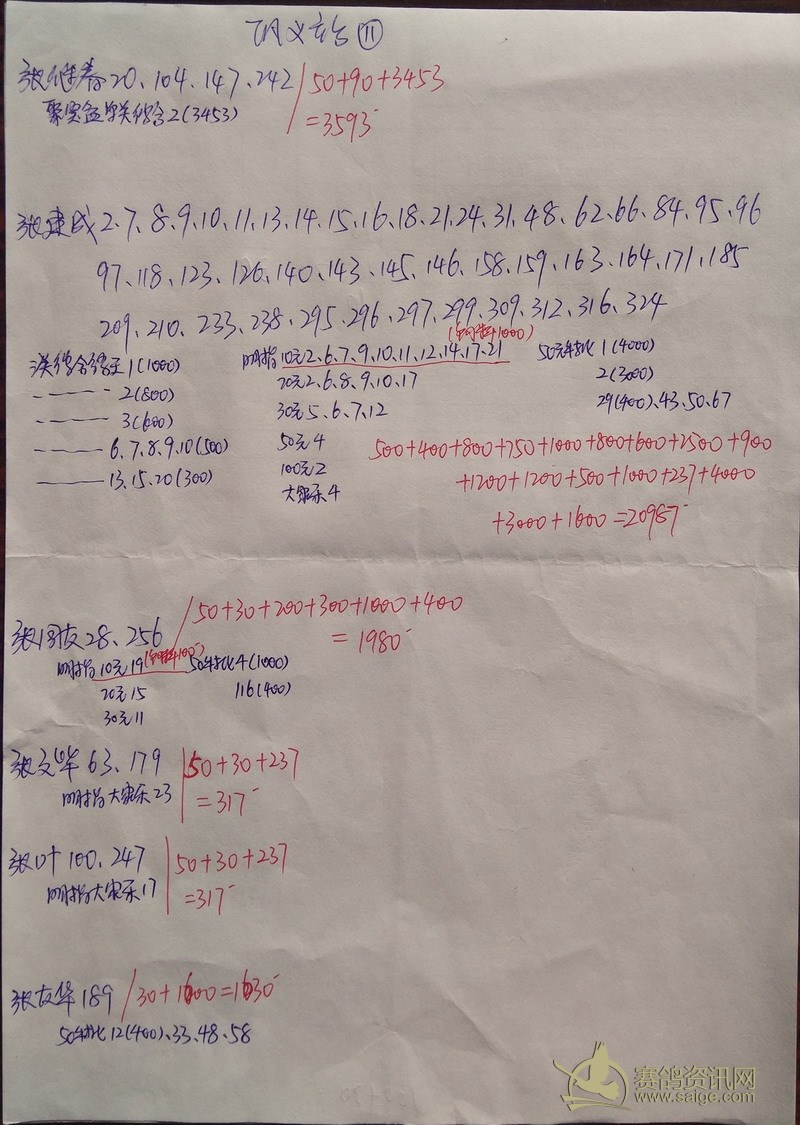 ⑪
张继春 20、104、147、242 / 50+90+3453
=3593
2(3453)
张建成 2、7、8、9、10、11、13、14、15、16、18、21、24、31、48、62、66、84、95、96
97、118、123、126、140、143、145、146、158、159、163、164、171、185
209、210、233、238、295、296、297、299、309、312、316、324
1(1000) 明指 10元 2、6、7、9、10、11、12、14、17、21 50元 1(4000)
2(800) 20元 2、6、8、9、10、17 2(3000)
3(600) 30元 5、6、7、12 29(400)、43、50、67
6、7、8、9、10(500) 50元 4 500+400+800+750+1000+800+600+2500+900
13、15、20(300) 100元 2 +1200+1200+500+1000+237+4000
大家乐 4 +3000+1600=20987
张国友 28、256 / 50+30+200+300+1000+400
=1980
明指 10元 19 4(1000)
20元 15 116(400)
30元 11
张文华 63、179 50+30+237
明指大家乐 23 =317
张叶 100、247 50+30+237
明指大家乐 17 =317
张友华 189 / 30+1600=1630
12(400)、33、48、58
赛鸽资讯网
www.saige.com